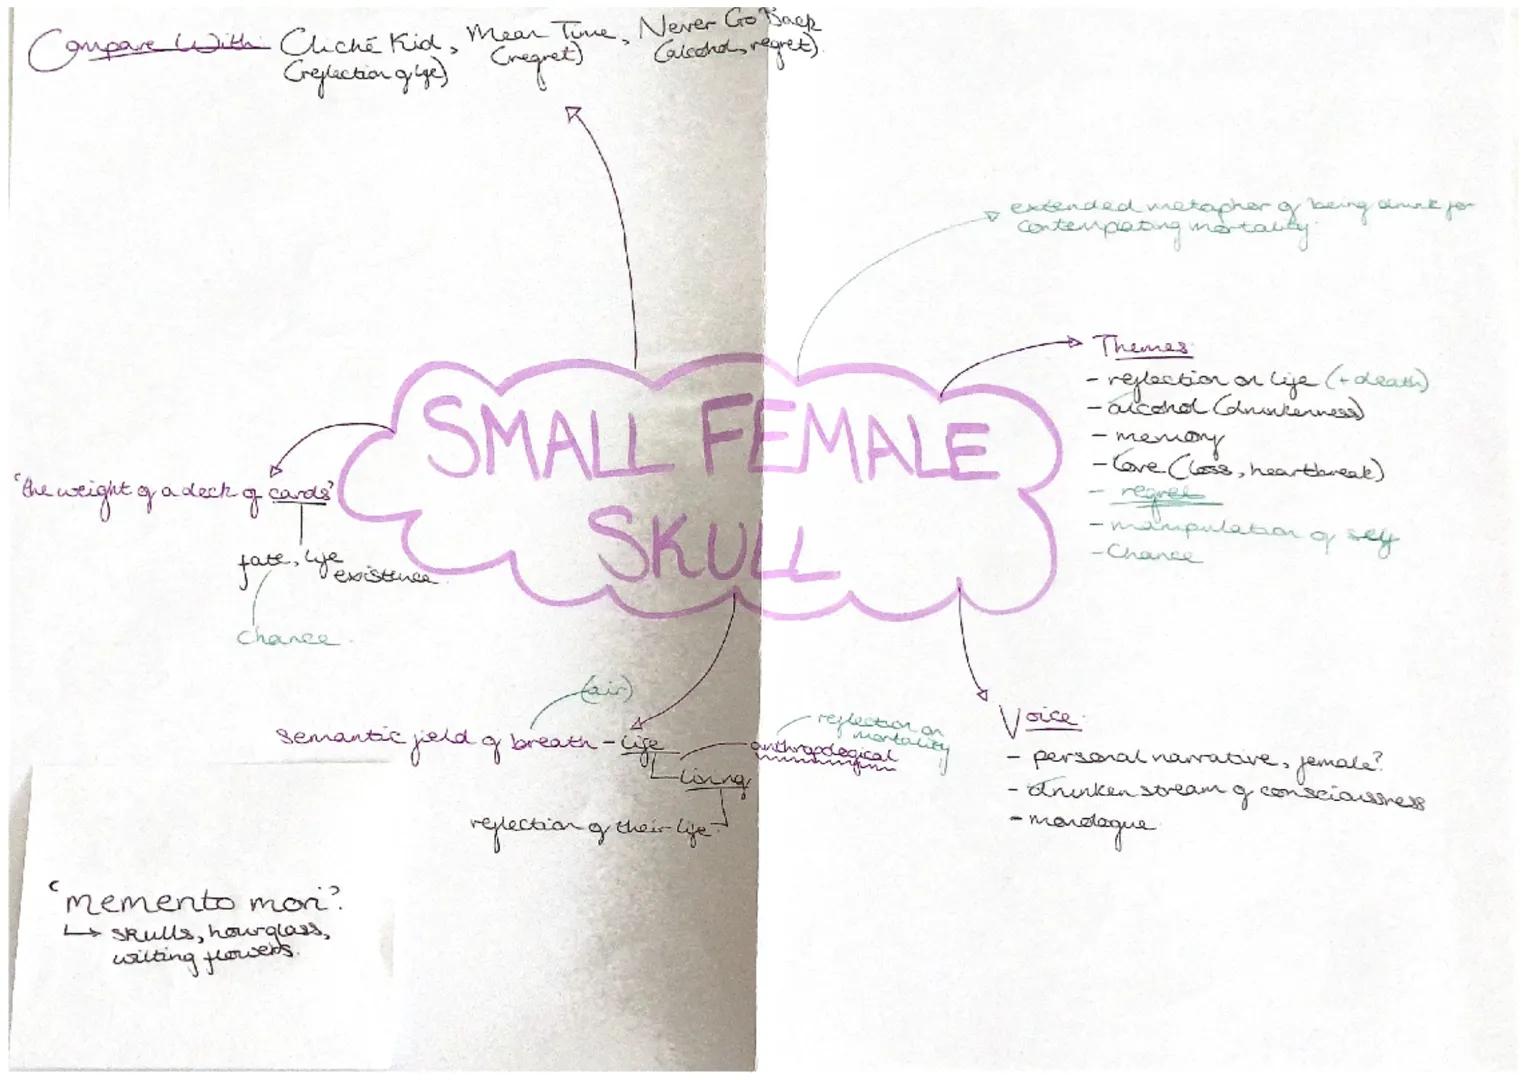 Compare With: Cliché Kid, Mean Time, Never Go Back
(reflection of life) (regret) (alcohol, regret).
extended metaphor of being drunk for
contemplating mortality.
SMALL FEMALE
SKULL
Themes:
- reflection on life (+death)
- alcohol (drunkenness)
- memory
- love (loss, heartbreak)
- regret
- manipulation of self
- Chance
'the weight of a deck of cards'
fate, life
existence.
Chance.
(air)
semantic field of breath - life
living
reflection of their life.
anthropological
reflection on
mortality
Voice:
- personal narrative, female?
- drunken stream of consciousness
- monologue.
'memento mori'.
↳ skulls, hourglass,
wilting flowers.